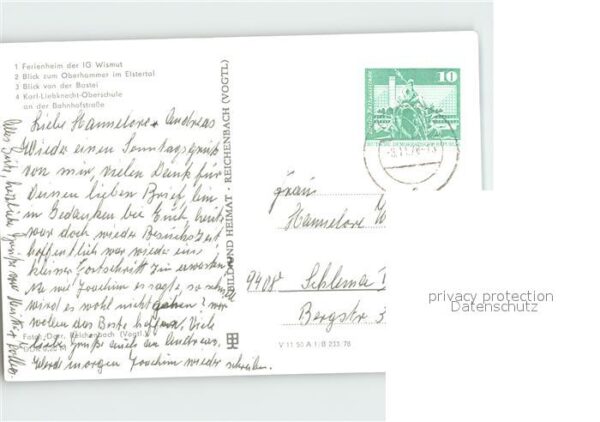 1 Ferienheim der IG Wismut
2 Blick zum Oberhammer im Elstertal
3 Blick von der Bastei
4 Karl-Liebknecht-Oberschule
an der Bahnhofstraße
Liebe Hannelore + Andreas
Wieder einen Sonntagsgruß
von mir, vielen Dank für
Deinen lieben Brief, bin
in Gedanken bei Euch, heute
war doch wieder Besuchszeit
hoffentlich war wieder ein
kleiner Fortschritt zu erwarten
wie Joachim er sagte, so schnell
wird es wohl nicht gehen? wir
wollen das Beste hoffen, Viele
liebe Grüße auch an Andreas.
Werd morgen Joachim wieder schreiben.
Alles Gute, herzliche Grüße
Foto: Darr, Reichenbach (Vogtl.)
BILD UND HEIMAT · REICHENBACH (VOGTL)
10
DEUTSCHE DEMOKRATISCHE REPUBLIK
Frau
Hannelore
9408 Schlema 1
Bergstr 3
V 11 50 A 1/B 233 78
privacy protection
Datenschutz